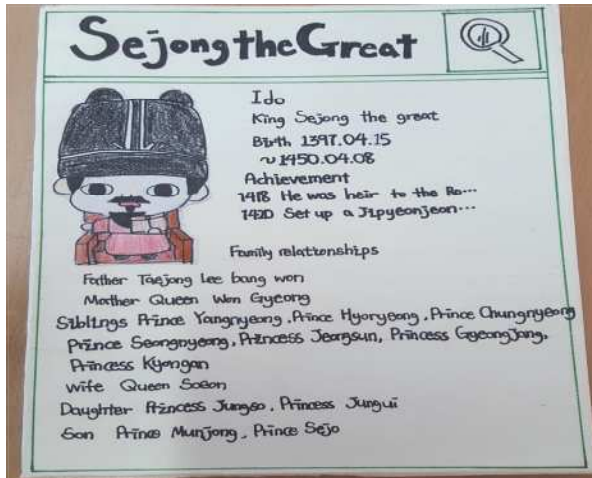 Sejong the Great
Ido
King Sejong the great
Birth 1397.04.15
~1450.04.08
Achievement
1418 He was heir to the Ro...
1420 Set up a Jipyeonjeon...
Family relationships
Father Taejong Lee bang won
Mother Queen Won Gyeong
Siblings Prince Yangnyeong, Prince Hyoryeong, Prince Chungnyeong
Prince Seongnyeong, Princess Jeongsun, Princess Gyeongjang,
Princess Kyongan
wife Queen Soeon
Daughter Princess Jungso, Princess Jungui
Son Prince Munjong, Prince Sejo